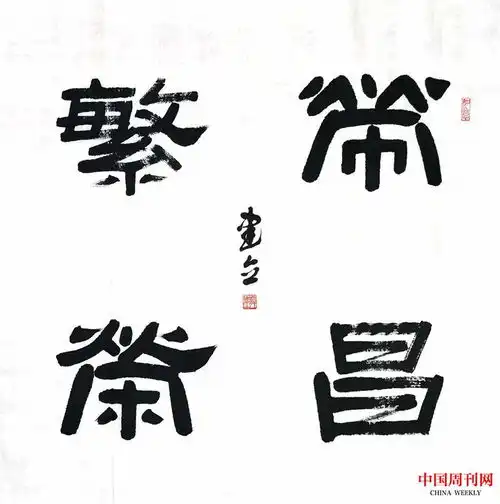 榮昌
繁榮
中国周刊网
CHINA WEEKLY